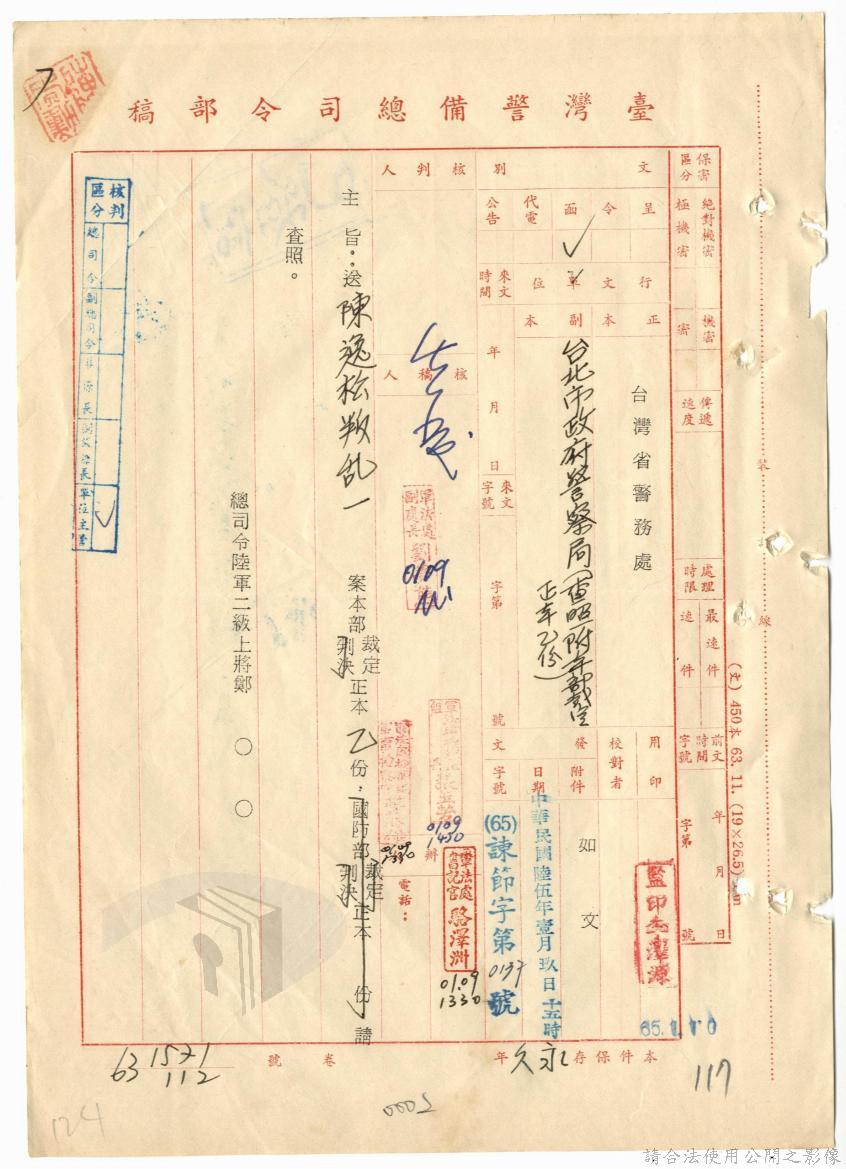 臺灣警備總司令部稿
保密區分
絕對機密
極機密
機密
密
傳遞速度
處理時限
最速件
速件
前文時間字號
年 月 日
字第 號
文別
呈
令
函
代電
公告
行文單位
正本
副本
來文時間
年 月 日
來文字號
字第 號
台灣省警務處
台北市政府警察局
用印
校對者
發文
附件
日期
字號
如文
中華民國陸伍年壹月玖日十五時
(65)諫節字第0137號
核判人
核稿人
軍法處副處長劉
0109
0109
1450
擬辦
軍法處書記官 駱澤洲
01.09
1330
0109
1330
電話：
主旨：送陳逸松叛乱一案本部裁定判決正本乙份，國防部裁定判決正本 份，請
查照。
總司令陸軍二級上將鄭○○
核判區分
總司令
副總司令
單位主管
裝
線
(文) 450本 63.11. (19×26.5)
本件保存永久年
卷號
63 1571
112
117
124
0005
請合法使用公開之影像